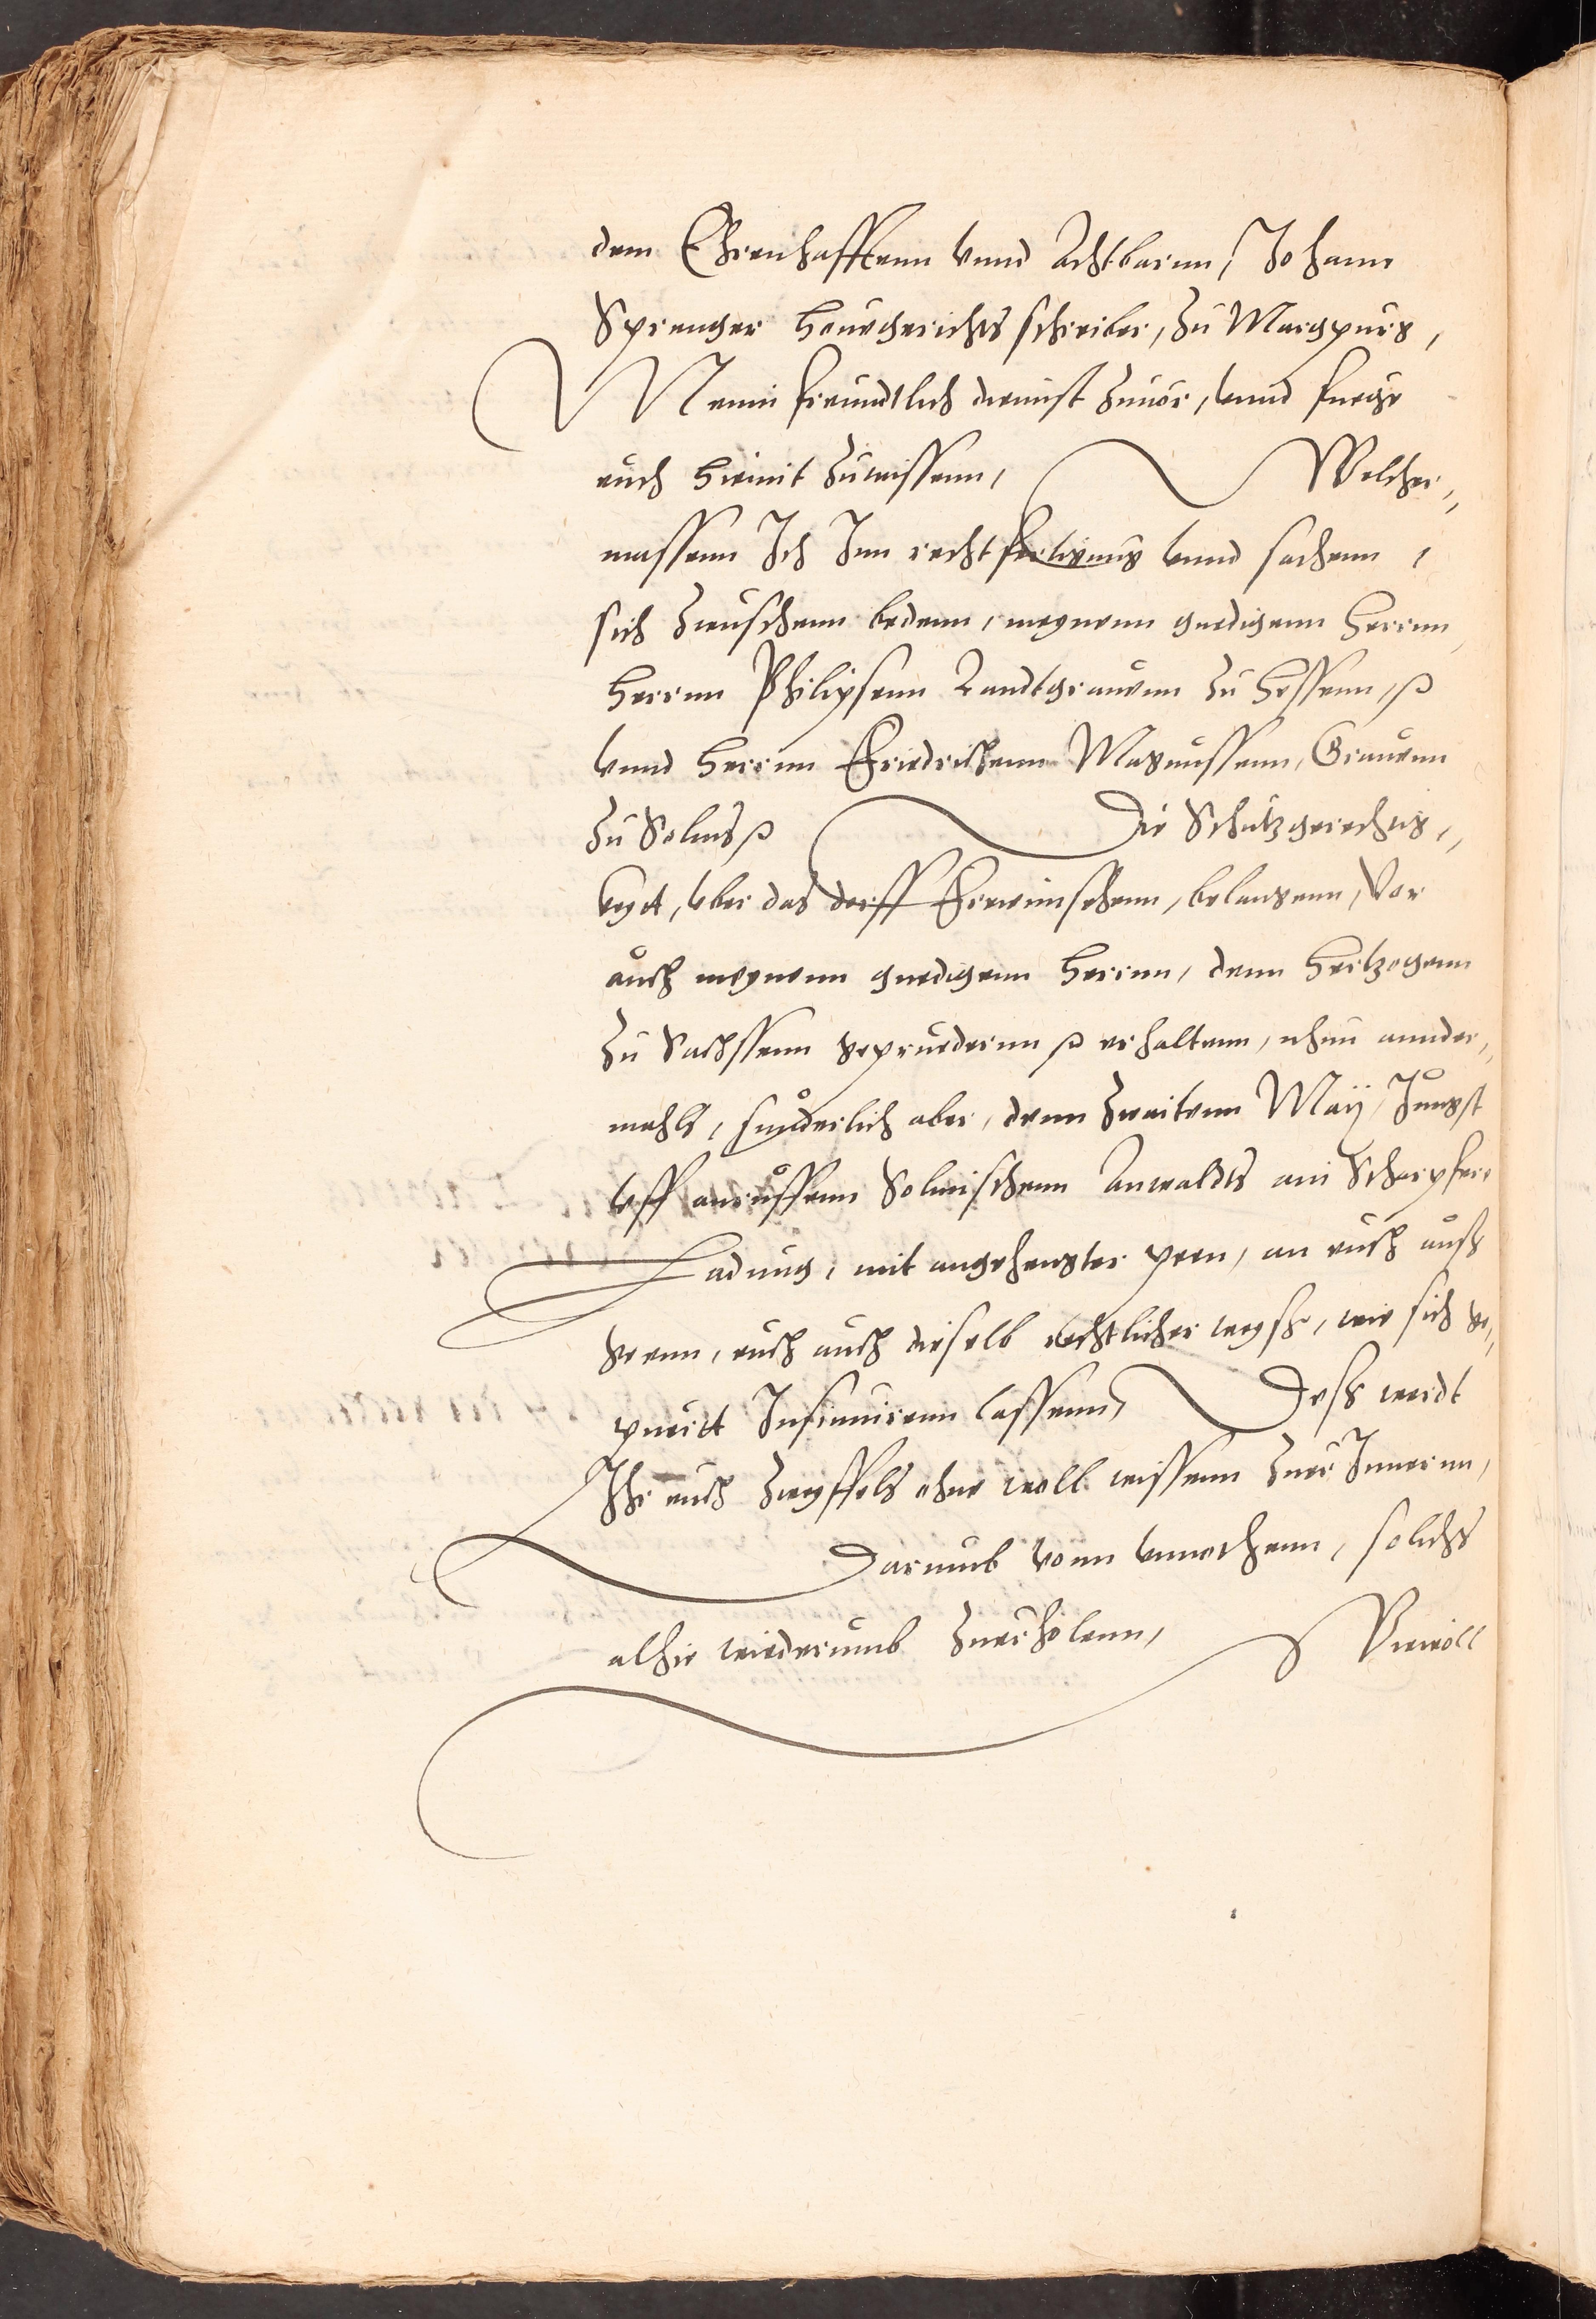 dem Ehrenhafftenn vnnd Achtbarnn, Johann
Sprenger Houegerichts schreiber, zu Margpurg,
Mein freundtlich dienist zuuor, vnnd fuege
euch hiemit zuwissenn, Welcher„
massenn Ich Inn rechtfertigung vnnd sachenn,
sich zwuschenn bedenn, meynenn gnedigenn Herrnn
Herrnn Philipsenn Landtgrauenn zu Hessenn,
vnnd Herrnn Friedrichenn Magnussenn, Grauenn
zu Solms Die Schutzgerechtig„
keyt, vber das dorff belangenn, Vor
auch meynenn gnedigenn Herrnn, denn Hertzogenn
zu Sachssenn gepruedernn erhaltenn, ehnn annder„
mahls, sunderlich aber, denn zweitenn Maij Jungst
vff anruffenn Solmischenn Anwaldts ein Scharpfere
Ladung, mit angehengter peen, an euch auß
geenn, euch auch dieselb rechtlicher weyß, wie sich ge„
puertt Insinuirenn lassenn, Deß werdt
Ihr euch zweyffels ohne woll wissenn zuer Innernn,
Darumb vonn vnnothenn, solichs
alhie wiederumb zuerholenn, Wiewoll